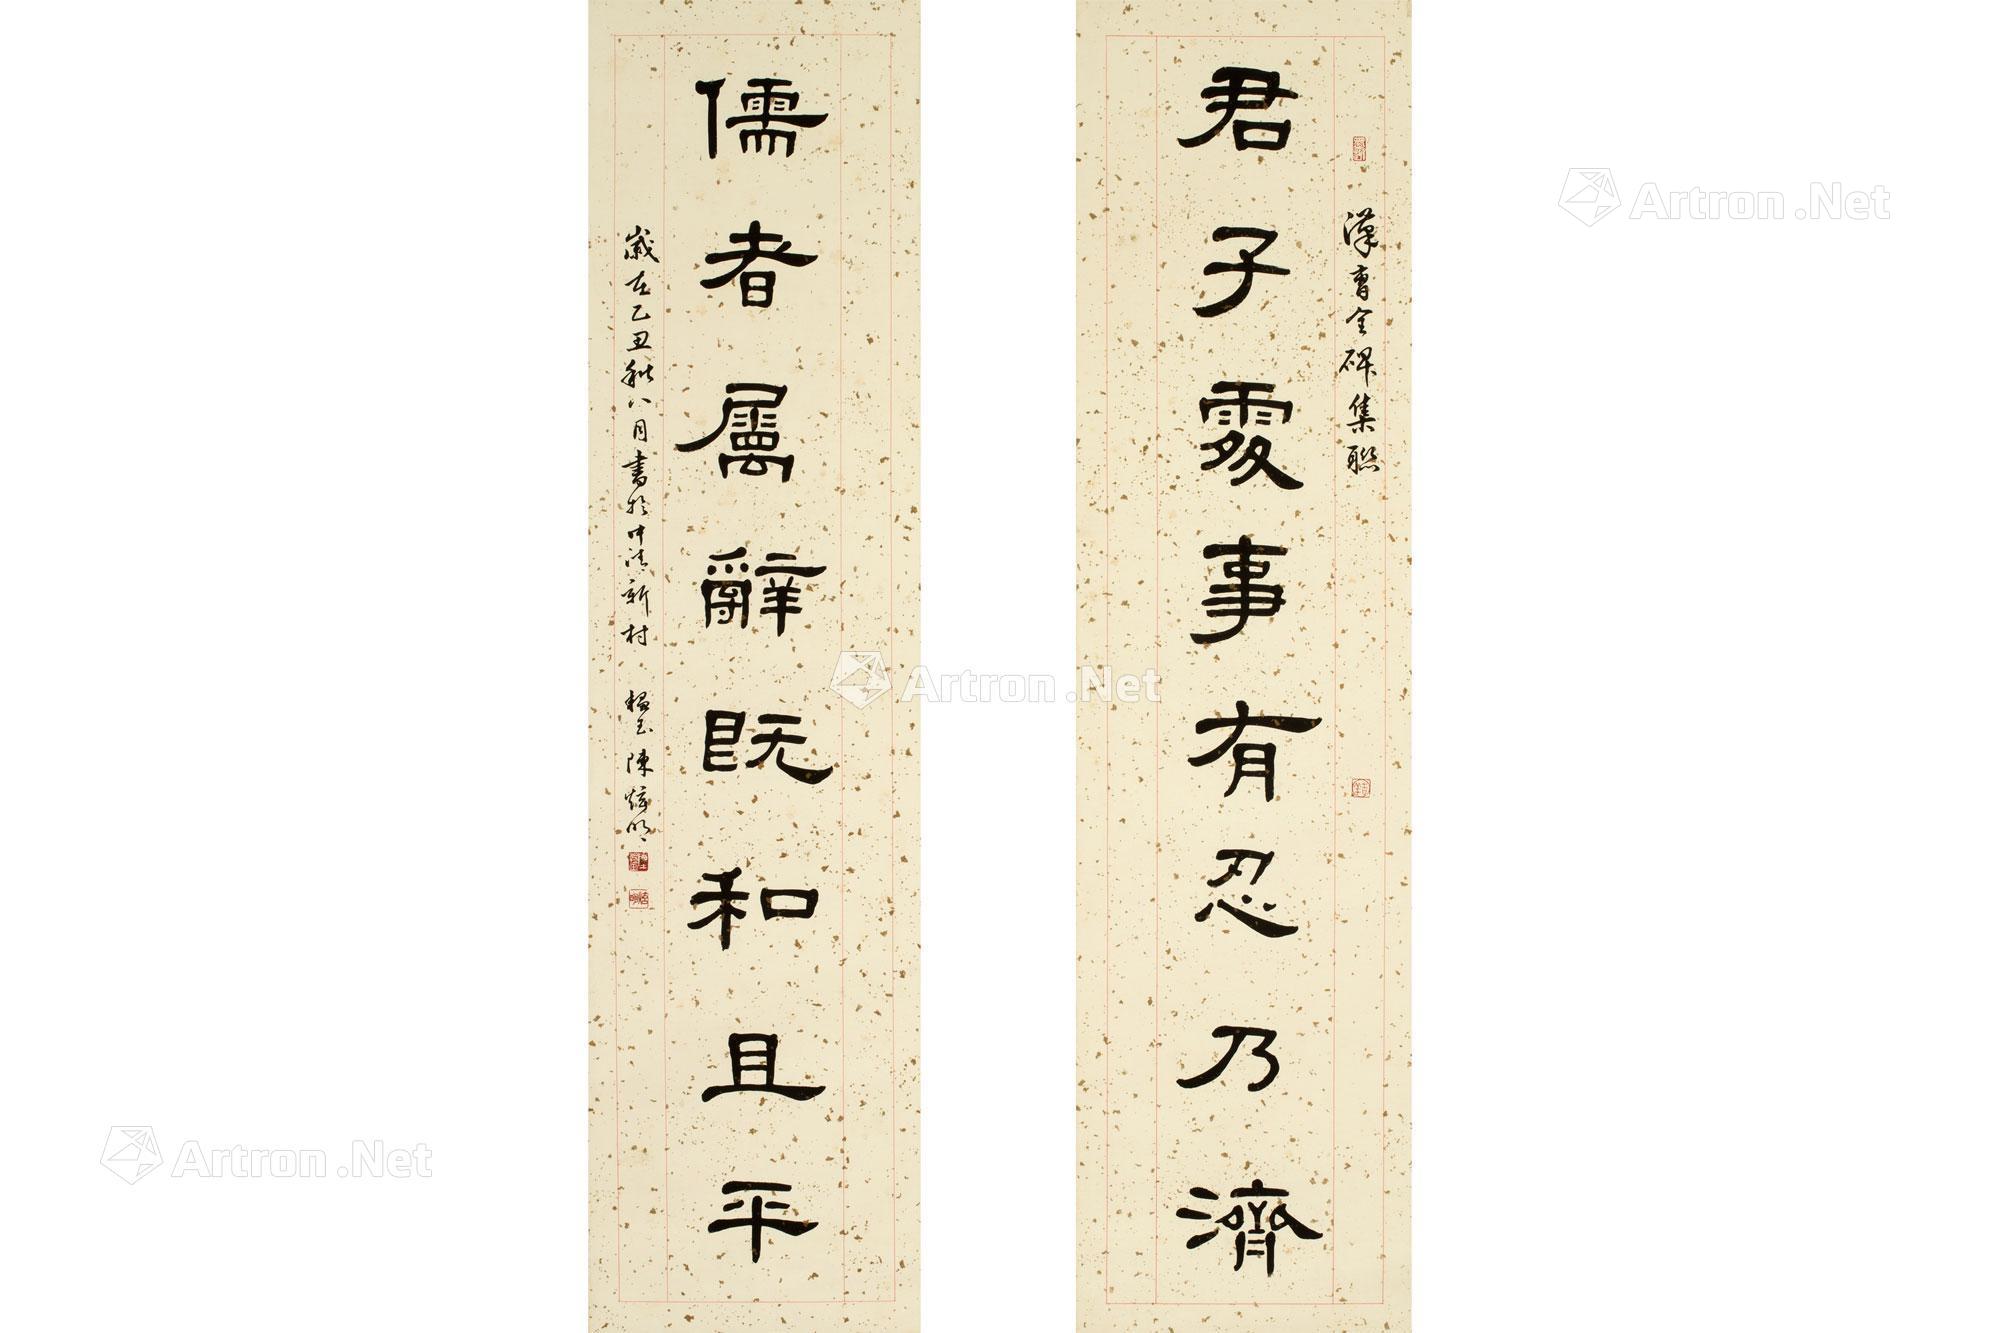 漢曹全碑集聯
君子處事有忍乃濟
儒者屬辭既和且平
歲在乙丑秋八月書於中清新村
陳
Artron.Net
Artron.Net
Artron.Net